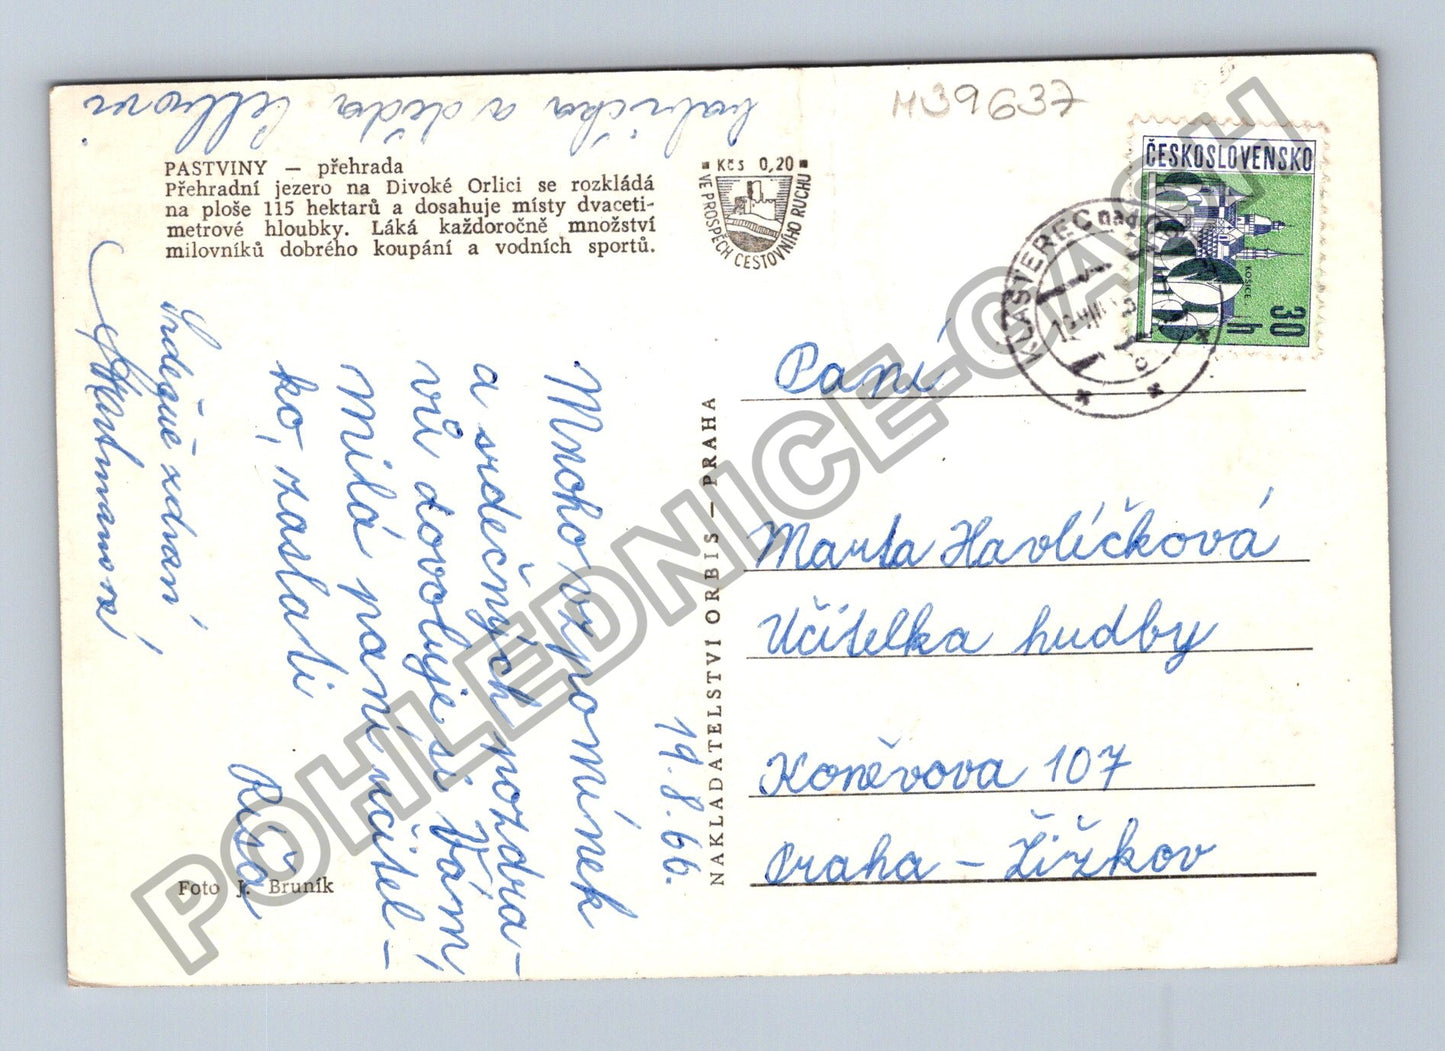 M39637
PASTVINY — přehrada
Přehradní jezero na Divoké Orlici se rozkládá
na ploše 115 hektarů a dosahuje místy dvaceti-
metrové hloubky. Láká každoročně množství
milovníků dobrého koupání a vodních sportů.
Kčs 0,20
VE PROSPĚCH CESTOVNÍHO RUCHU
ČESKOSLOVENSKO
KOŠICE
30 h
KLÁŠTEREC nad
19.8.66.
Mnoho vzpomínek
a srdečných pozdra-
vů dovoluje si Vám,
milá paní učitel-
ko, zaslati
Ríša
Srdečně zdraví
Hartmanová
babička a děda
NAKLADATELSTVÍ ORBIS — PRAHA
Paní
Marta Havlíčková
Učitelka hudby
Koněvova 107
Praha - Žižkov
Foto J. Bruník
POHLEDNICE-CASH